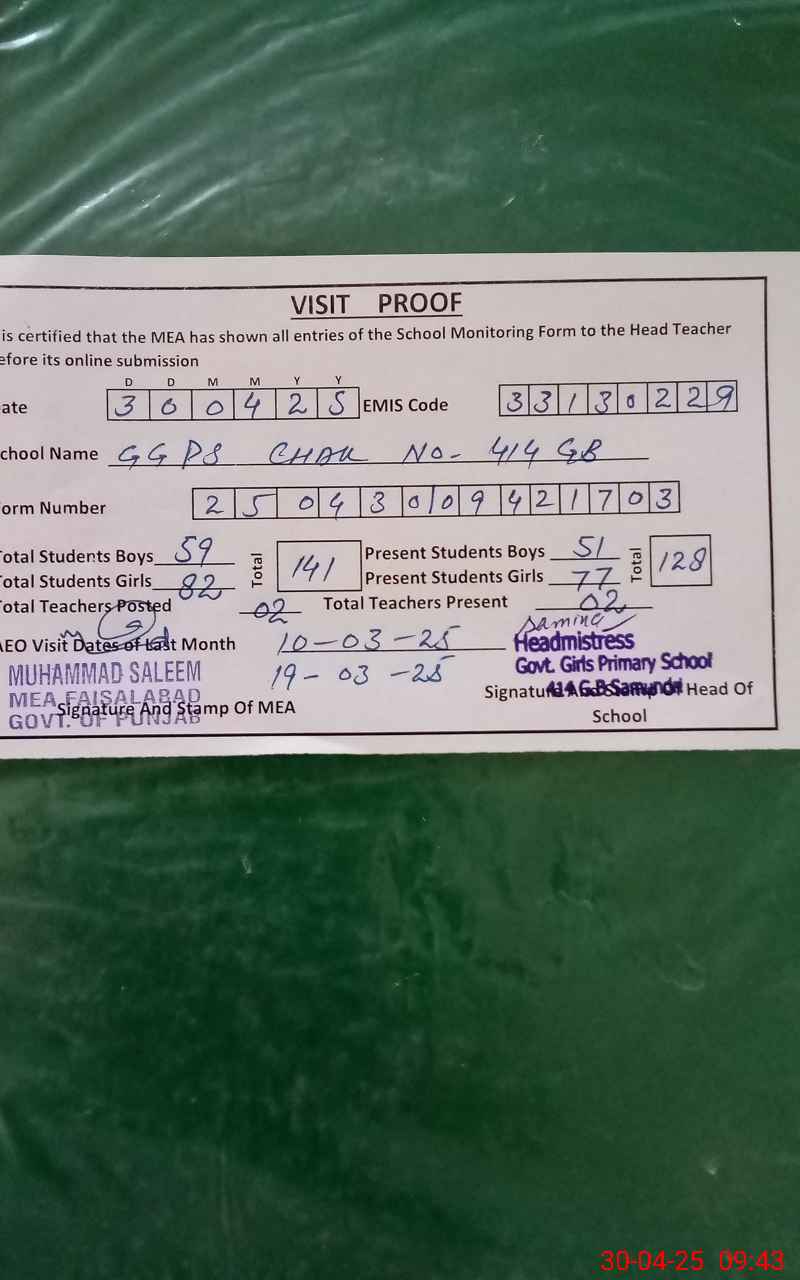 VISIT PROOF
is certified that the MEA has shown all entries of the School Monitoring Form to the Head Teacher
efore its online submission
D D M M Y Y
ate 3 0 0 4 2 5 EMIS Code 3 3 1 3 0 2 2 9
chool Name GGPS CHAK NO- 414 GB
orm Number 2 5 0 4 3 0 0 9 4 2 1 7 0 3
Total Students Boys 59 Total 141 Present Students Boys 51 Total 128
Total Students Girls 82 Present Students Girls 77
Total Teachers Posted 02 Total Teachers Present 02
AEO Visit Dates of Last Month 10-03-25
19-03-25
Samina
Headmistress
Govt. Girls Primary School
414 G.B Samundri
MUHAMMAD SALEEM
MEA FAISALABAD
GOVT. OF PUNJAB
Signature And Stamp Of MEA
Signature And Stamp Of Head Of
School
30-04-25 09:43